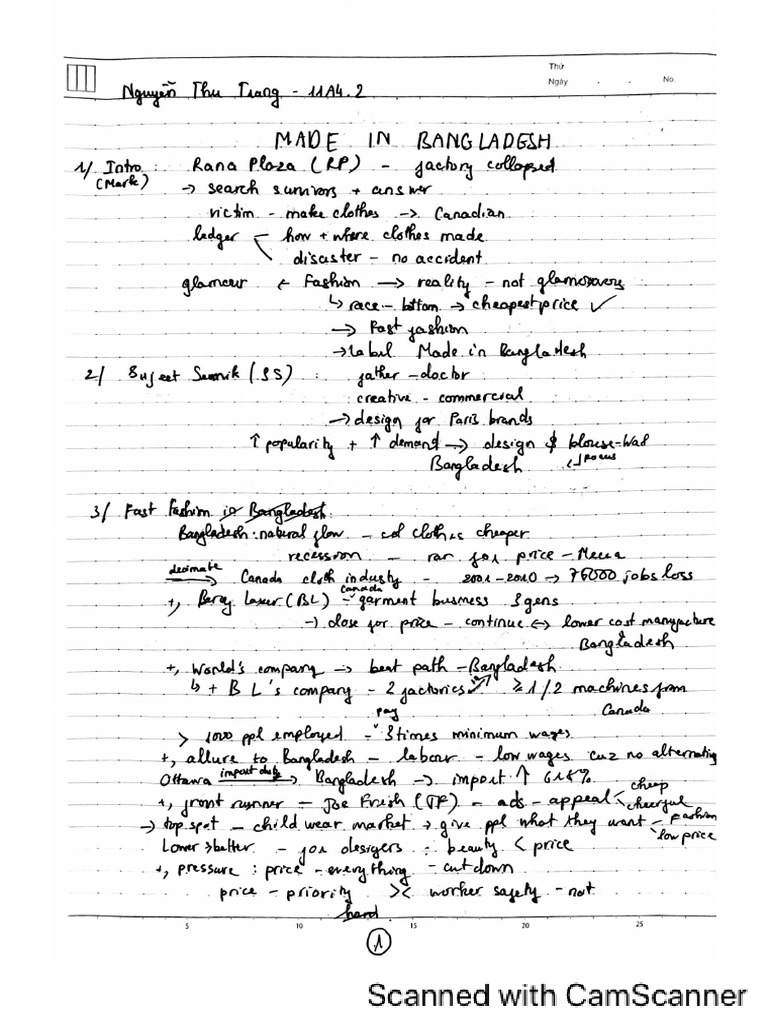 Thứ
Ngày . . No.
Nguyễn Thu Trang - 11A4.2
MADE IN BANGLADESH
1/ Intro : Rana Plaza (RP) - factory collapsed
(Mark) → search survivors + answer
victim - make clothes → Canadian
ledger how + where clothes made
disaster - no accident
glamour ← Fashion → reality - not glamorous
↳ race - bottom → cheapest price ✓
→ Fast fashion
→ Label Made in Bangladesh
2/ Sujeet Sennik (SS) : father - doctor
creative - commercial
→ design for Paris brands
↑ popularity + ↑ demand → design $ blouse - Wal
Bangladesh ↲ focus
3/ Fast Fashion in Bangladesh
Bangladesh : natural flow - clothes cheaper
recession - ran for price - Mecca
decimate
→ Canada cloth industry - 2001 - 2010 → 76000 jobs loss
Canada
+, Barry Laxer (BL) - garment business 3 gens
→ close for price - continue ↔ lower cost manufacture
Bangladesh
+, World's company → beat path - Bangladesh
↳ + BL's company - 2 factories ≥ 1/2 machines from
pay Canada
> 1000 ppl employed - 3 times minimum wages
+, allure to Bangladesh - labour - low wages cuz no alternating
Ottawa import duty → Bangladesh → import ↑ 618%
+, front runner - Joe Fresh (JF) - ads - appeal cheap
cheerful
→ top spot - child wear market → give ppl what they want - Fashion
low price
Lower > better - for desigers : beauty < price
+, pressure : price - everything - cut down
price - priority >< worker safety - not
hard
5 10 15 20 25
1
Scanned with CamScanner